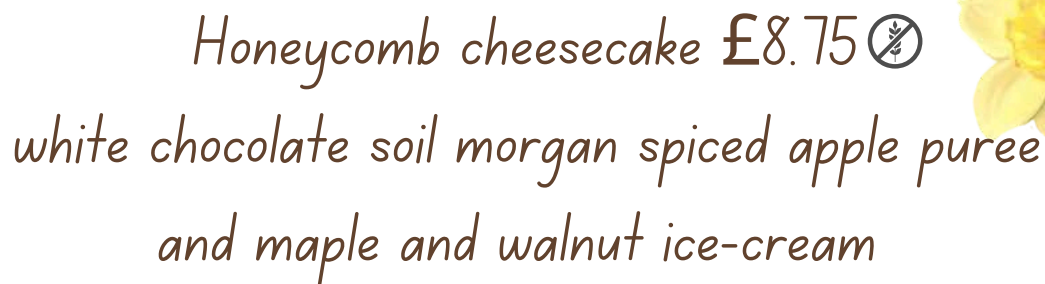 Honeycomb cheesecake £8.75
white chocolate soil morgan spiced apple puree
and maple and walnut ice-cream